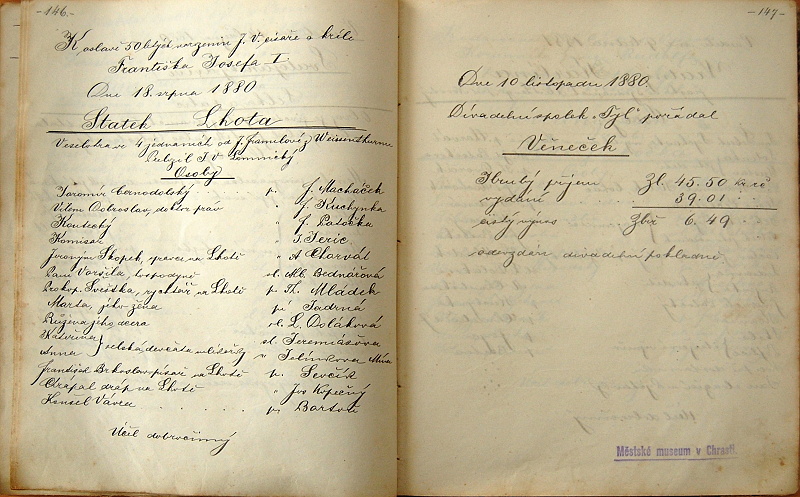 -146.-
K oslavě 50 letých narozenin J. V. císaře a krále
Františka Josefa I
Dne 18. srpna 1880
Statek Lhota
Veselohra ve 4 jednáních od J. z Weissenthurmu
Osoby
Jaromír Černodolský . . . . p. J. Macháček
Vilém Dobroslav, doktor práv " J. Kuchynka
Koutecký " J. Patočka
Komisař " J. Jeric
Jeroným Skopek, správce na Lhotě " A Charvát
Paní Voršila, hospodyně sl. Alb. Bednářová
Prokop Světska, rychtář na Lhotě p. Th. Mládek
Marta, jeho žena pí Jadrná
Růžina jeho dcera sl. L. Doláková
Kateřina } selská děvčata sl. Jeremiášova
Anna " Mina
František Brkoslav písař na Lhotě p. Ševčík
Chrápal dráb na Lhotě " Jos Kopečný
Hansel Vávra . . . . . . . p. Bartoš
Účel dobročinný
-147-
Dne 10 listopadu 1880.
Divadelní spolek "Tyl" pořádal
Věneček
Hrubý příjem Zl. 45.50 kr. č
vydání . . 39.01 . . .
čistý výnos Zbÿr 6.49
odevzdán divadelní pokladně.
Městské museum v Chrasti.